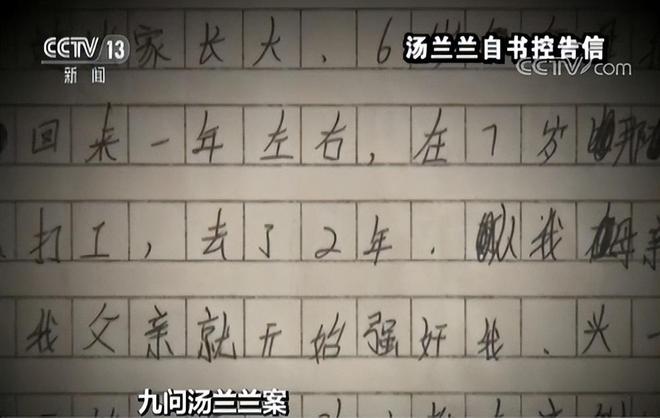 CCTV 13
新闻
汤兰兰自书控告信
CCTV.com
家长大、6
回来一年左右,在7岁那
打工,去了2年.从我母亲
我父亲就开始强奸我、兴一
九问汤兰兰案